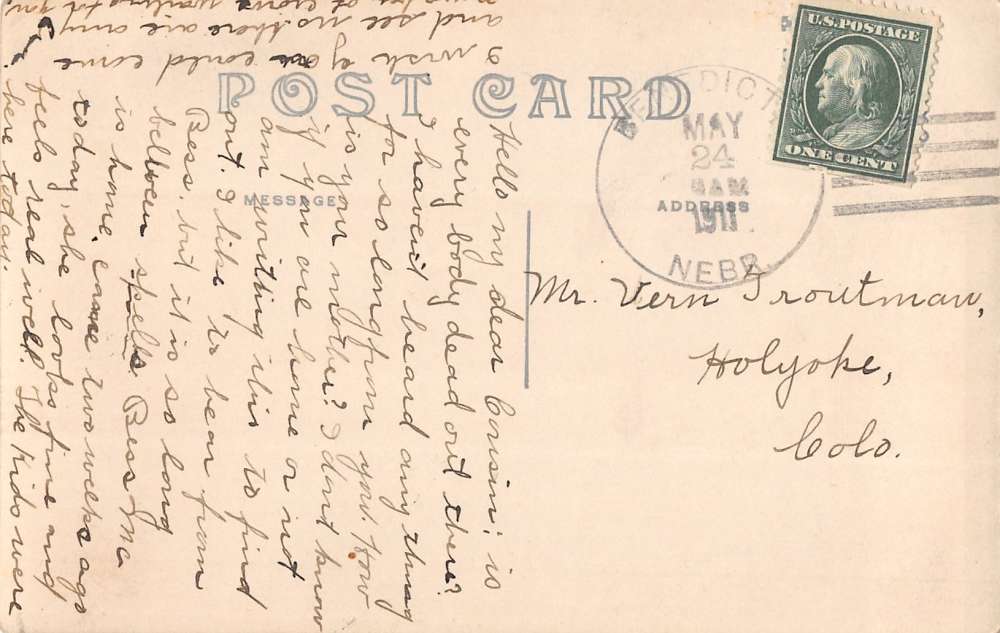 POST CARD
MESSAGE
ADDRESS
U.S. POSTAGE
ONE CENT
BENEDICT
MAY
24
AM
1911
NEBR.
Mr. Vern Troutman,
Holyoke,
Colo.
Hello my dear Cousin: is
every body dead out there?
I haven't heard any thing
for so long from you. How
is your mother? I don't know
if you are home or not
am writing this to find
out. I like to hear from
Bess, but it is so long
between spells. Bess Mc
is home, came two weeks ago
today, she looks fine and
feels real well. The kids were
here today.
I wish you could come
and see us there are any
waiting for you